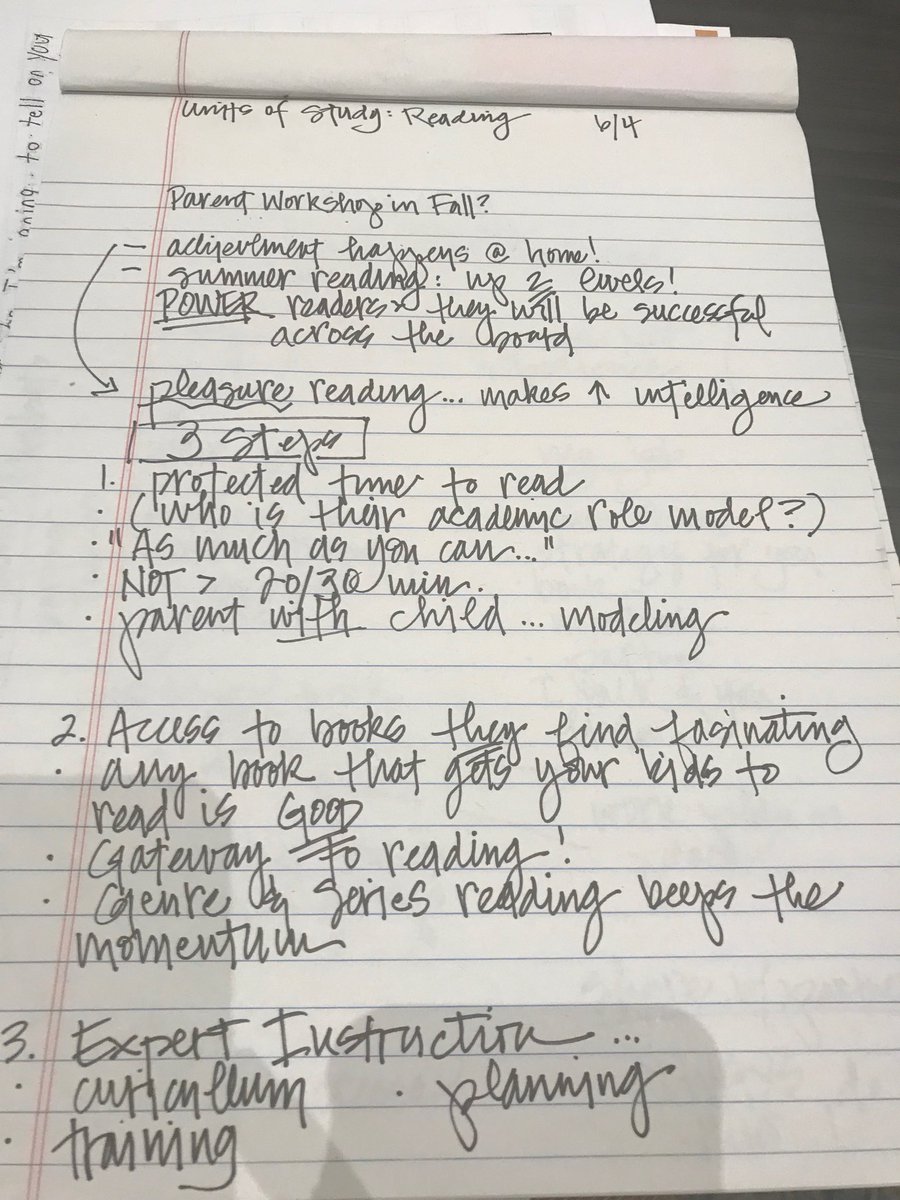 Units of Study: Reading 6/4
Parent Workshop in Fall?
- achievement happens @ home!
- summer reading: up 2 levels!
POWER readers → they will be successful
across the board
pleasure reading... makes ↑ intelligence
3 Steps
1. protected time to read
· (who is their academic role model?)
· "As much as you can..."
· NOT > 20/30 min..
· parent with child ... modeling
2. Access to books they find fasinating
· any book that gets your kids to
read is GOOD
· Gateway to reading!
· Genre & Series reading keeps the
momentum
3. Expert Instruction ...
· curicullum · planning
· training